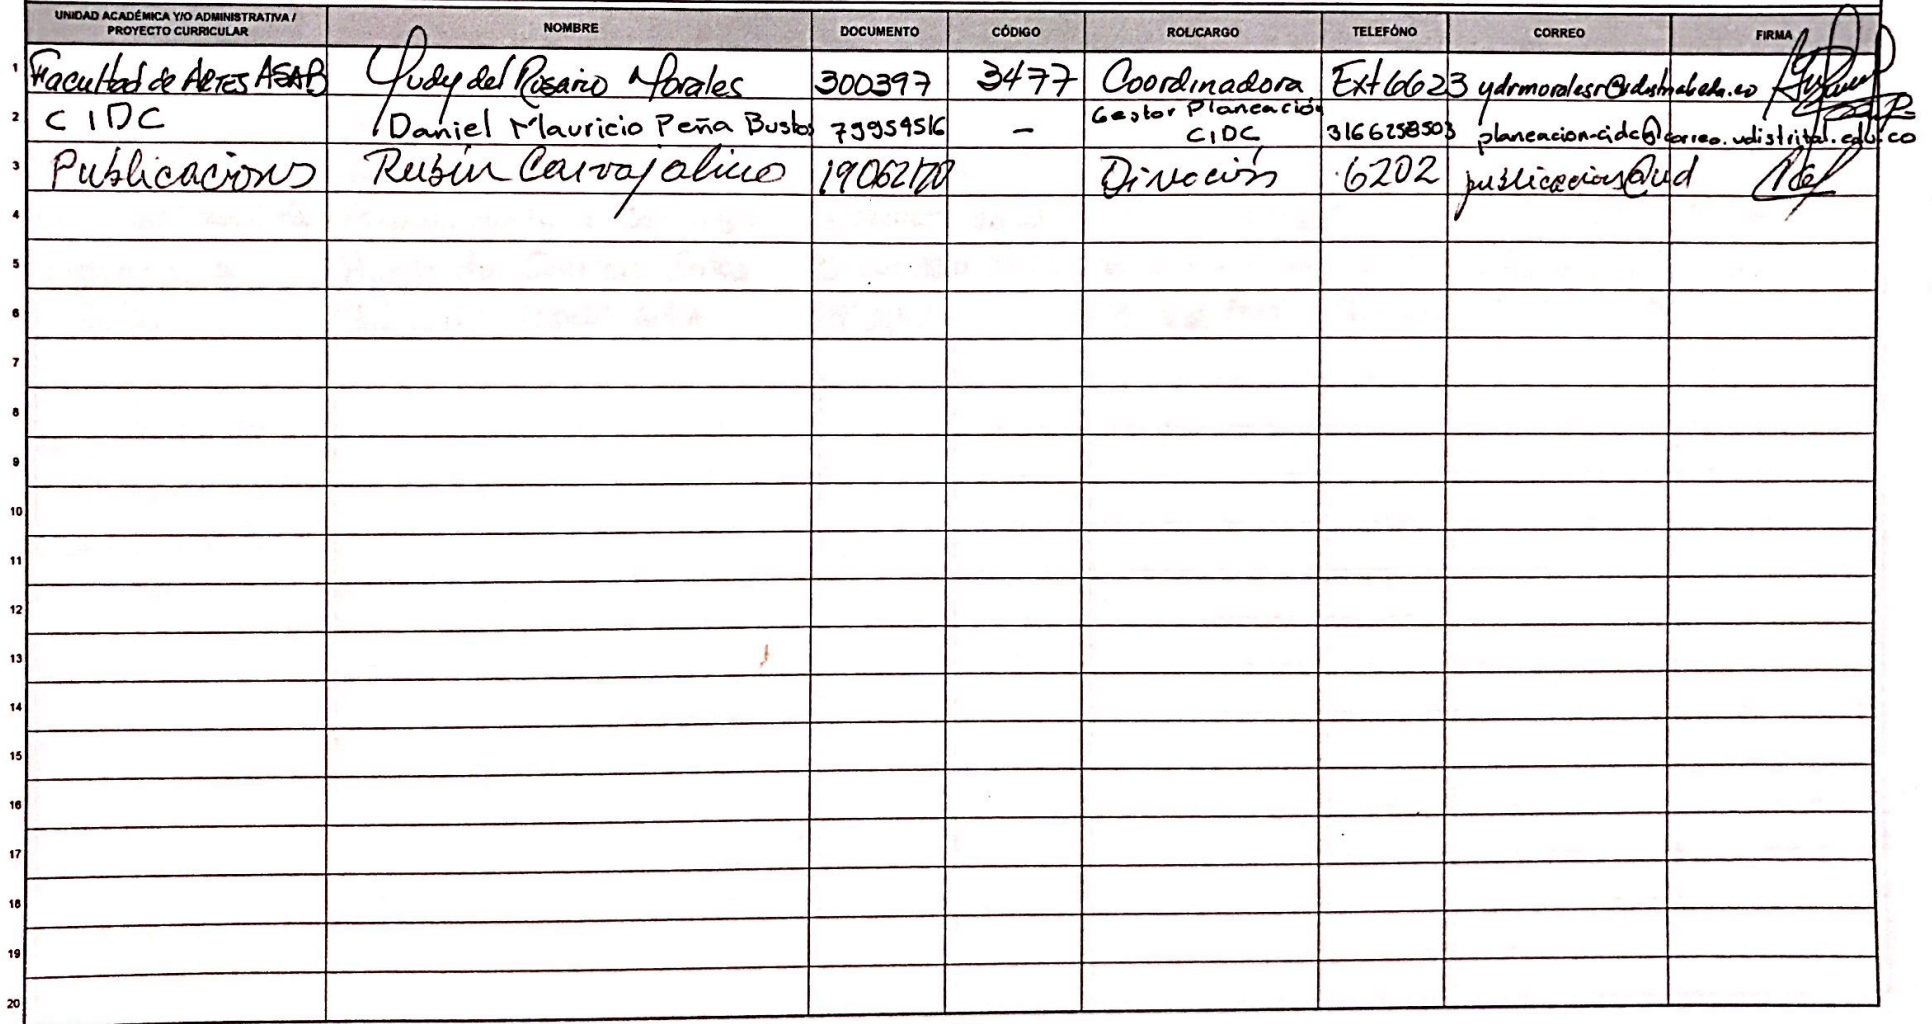 UNIDAD ACADÉMICA Y/O ADMINISTRATIVA / PROYECTO CURRICULAR NOMBRE DOCUMENTO CÓDIGO ROL/CARGO TELEFÓNO CORREO FIRMA
1 Facultad de ARTES ASAB Yudy del Rosario Morales 300397 3477 Coordinadora Ext 6623
2 CIDC Daniel Mauricio Peña Bustos 79954516 – Gestor Planeación CIDC 3166258503 planeacion-cidc@correo.udistrital.edu.co
3 Publicacions Rubén Carvajalino Dirección 6202 publicacions@ud
4
5
6
7
8
9
10
11
12
13
14
15
16
17
18
19
20